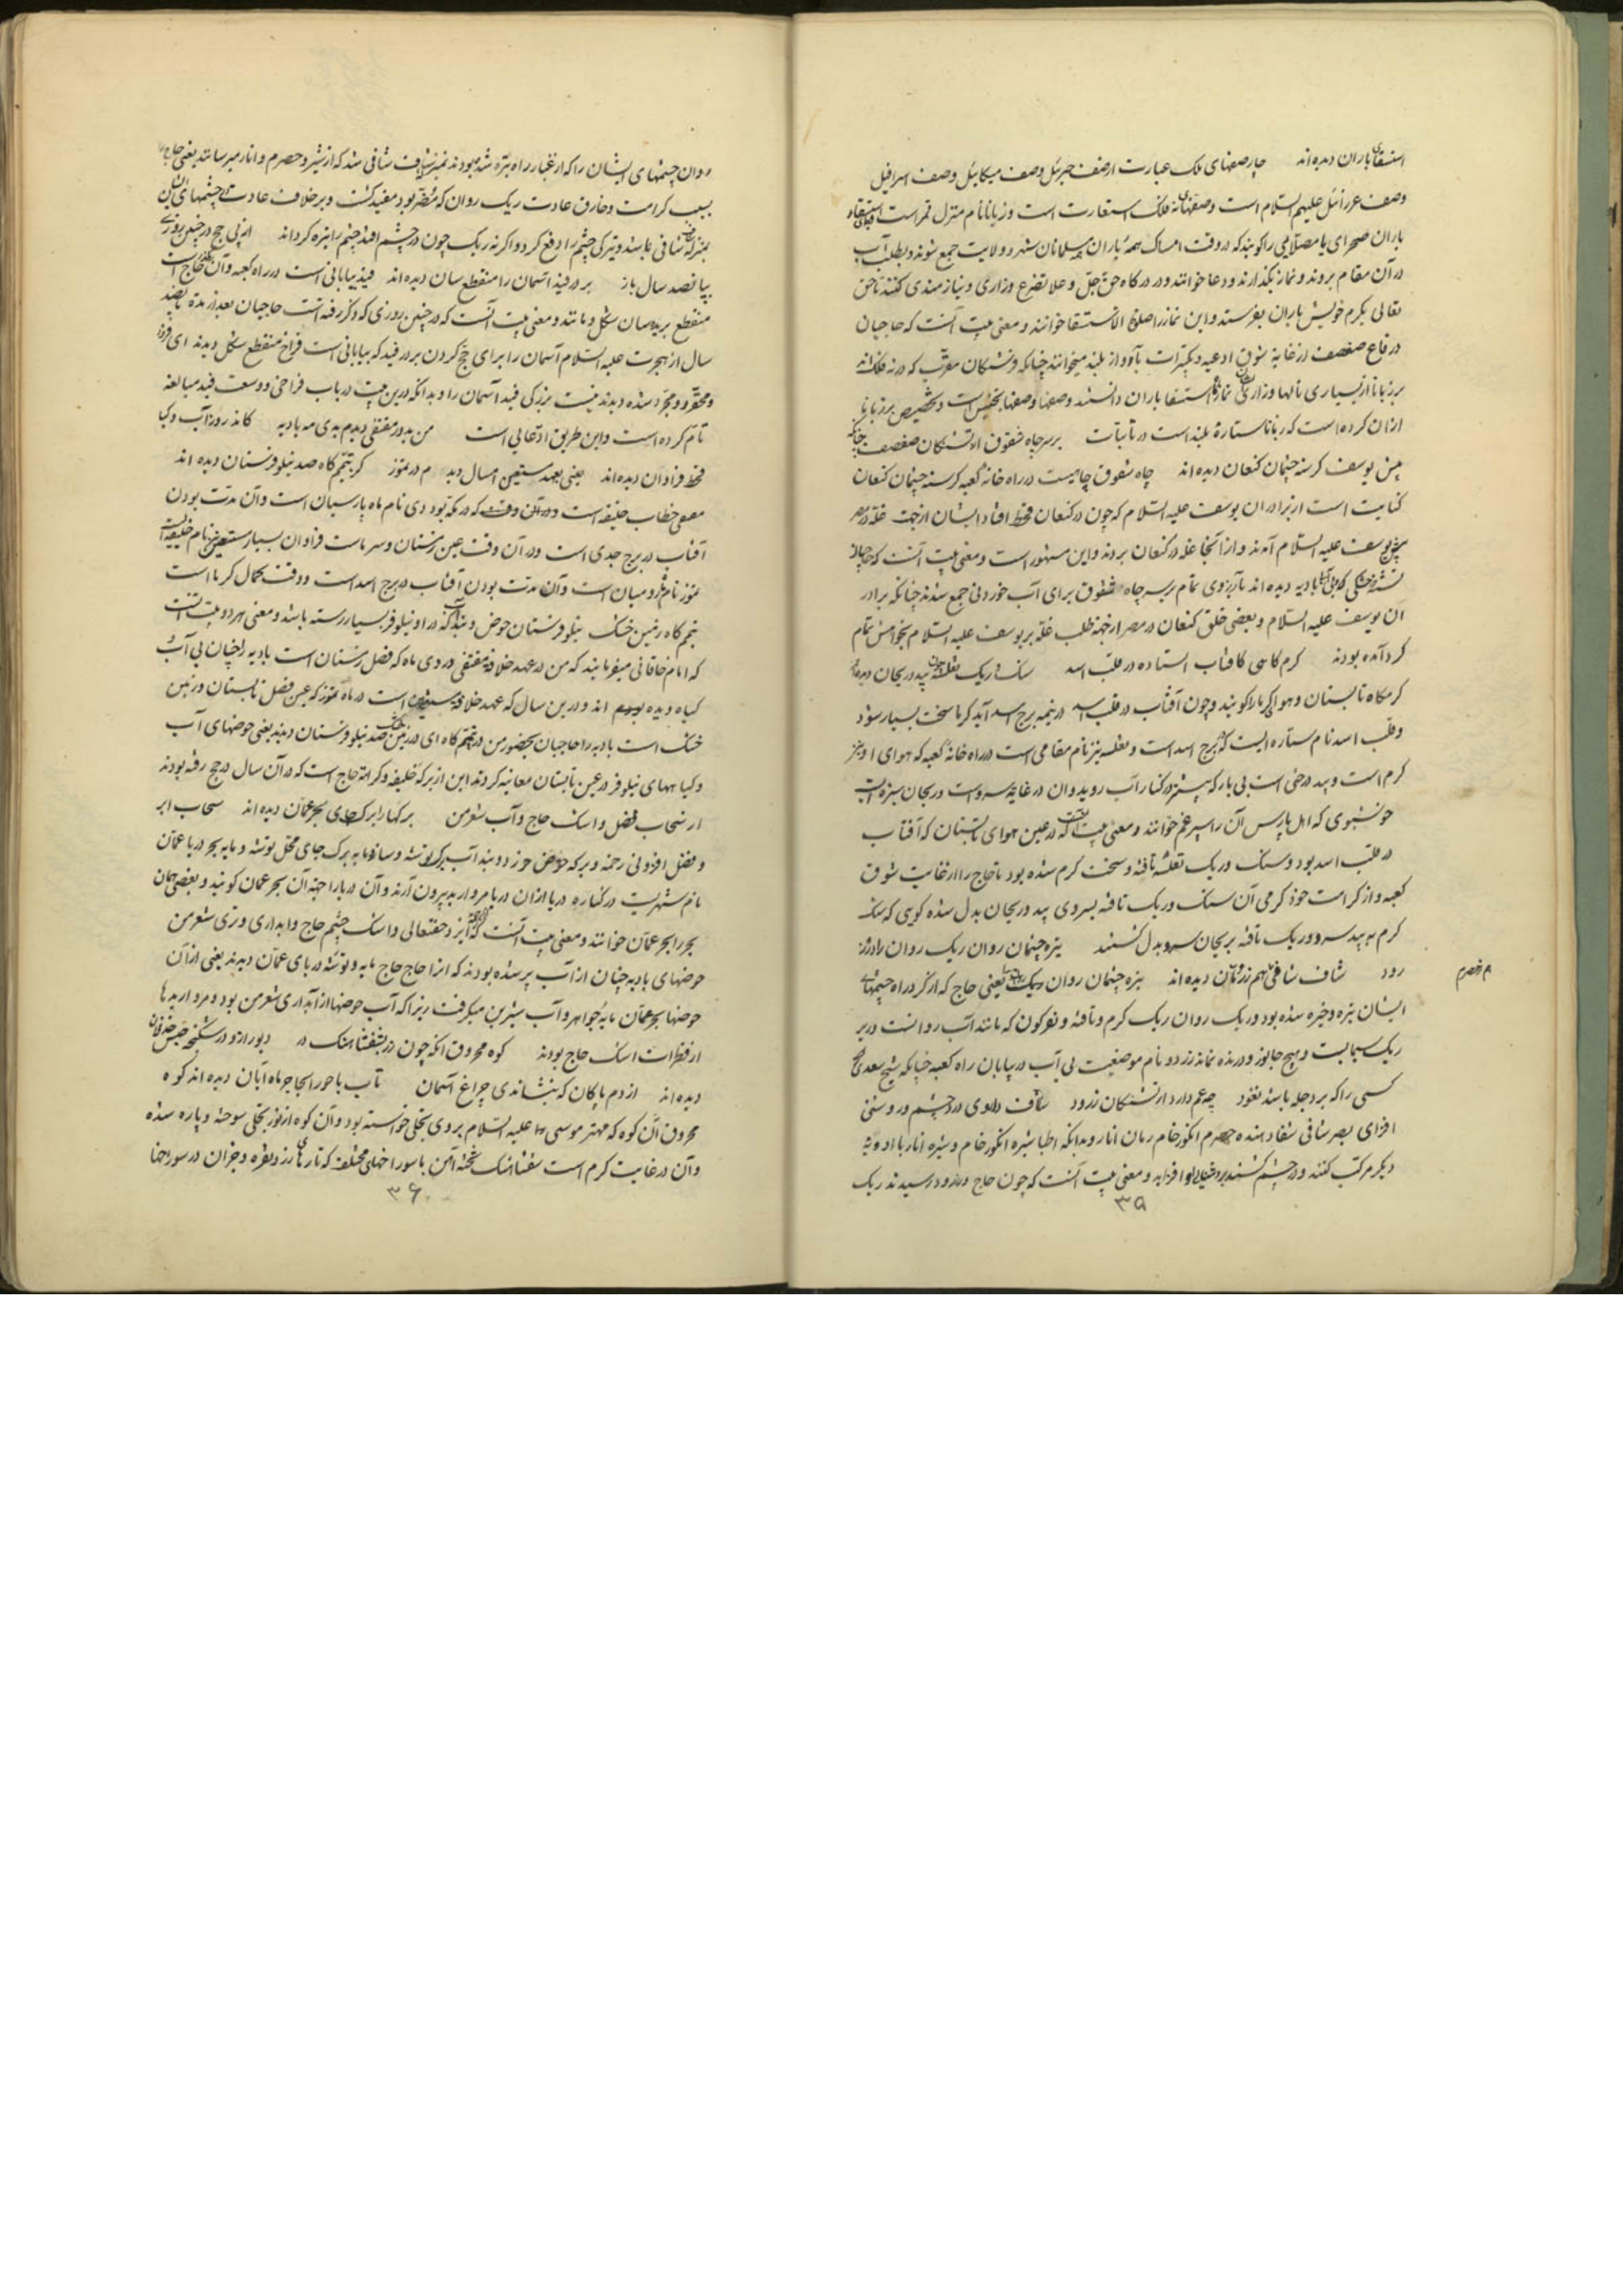 استسقای باران دیده اند چار صفهای ملک عبارت از صف جبرئیل وصف میکائیل وصف اسرافیل
وصف عزرائیل علیهم السلام است وصفهای نه فلک استعارت است و زبانا نام منزل قمر است
باران صحرای یا مصلایی را کویند که در وقت امساک باران همه مسلمانان شهر و ولایت جمع شوند و بطلب آب
در آن مقام بروند و نماز بکذارند و دعا خوانند و در درکاه حق جل و علا تضرع وزاری و نیازمندی کنند تا حق
تعالی بکرم خویش باران بفرستد و این نماز را صلوة الاستسقا خوانند و معنی بیت آنست که حاجیان
در قاع صفصف از غایة شوق ادعیه و تکبیرات بآواز بلند میخوانند چنانکه فرشتکان مقرب که در نه فلک اند
بر زبانا از بسیاری نالها وزاری نماز استسقا باران دانستند
ازان کرده است که زبانا ستارهٔ بلند است در ثابتات بر سر چاه شقوق از تشنکان صف صف چنانکه
پیش یوسف کرسنه چشمان کنعان دیده اند چاه شقوق چاهیست در راه خانهٔ کعبه کرسنه چشمان کنعان
کنایت است از برادران یوسف علیه السلام که چون در کنعان قحط افتاد ایشان از جهت غله در مصر
پیش یوسف علیه السلام آمدند و از آنجا غله در کنعان بردند و این مشهور است و معنی بیت آنست که حاجیان
بادیه دیده اند بآرزوی تمام بر سر چاه شقوق برای آب خوردنی جمع شدند چنانکه برادر
ان یوسف علیه السلام و بعضی خلق کنعان در مصر از جهة طلب غله بر یوسف علیه السلام بخواهش تمام
کرد آمده بودند کرم کاهی کافتاب استاده در قلب اسد سنک و ریک ثعلبیه بید و ریحان دیده اند
کرمکاه تابستان و هوای کرما را کویند و چون آفتاب در قلب اسد در نیمه برج اسد آید کرما سخت بسیار شود
و قلب اسد نام ستاره ایست که برج اسد است و ثعلبیه نیز نام مقامی است در راه خانهٔ کعبه که هوای او نیز
کرم است و بید درختی است بی بار که بیشتر در کنار آب روید و ان در غایة سرد است و ریحان سبزه است
خوشبوی که اهل پارس آن را سپرغم خوانند و معنی بیت آنست که در عین هوای تابستان که آفتاب
در قلب اسد بود و سنک و ریک ثعلبیه تافته و سخت کرم شده بود تا حاج را از غایت شوق
کعبه و از کرامت خود کرمی آن سنک و ریک تافته بسردی بید و ریحان بدل شده کویی که سنک
کرم به بید سرد و ریک تافته بریحان سرد بدل کشتند تیره چشمان روان ریک روان را در زر
رود شاف شافی هم ز رمان دیده اند تیره چشمان روان ریک یعنی حاج که از کرد راه چشمهای
ایشان تیره و خیره شده بود و ریک روان ریک کرم و تافته و نو کون که مانند آب روانست
ریک سیماست و هیچ جانور درنده نماند زرود نام موضعیست بی آب در بیابان راه کعبه چنانکه شیخ سعدی
کسی را که بر دجله باشد نغود چه غم دارد از تشنکان زرود شاف داروی درد چشم و روشنی
افزای بصر شافی شفا دهنده حصرم انکور خام رمان انار و بدانکه اطبا شیره انکور خام و شیره انار با ادویهٔ
دیکر مرکب کنند و در چشم کشند افزاید و معنی بیت آنست که چون حاج در زرود رسیدند ریک
۳۵
م حصرم
روان چشمهای ایشان را که از غبار راه تیره شده بودند شاف شافی شد که از شیر و حصرم و انار میرسانند یعنی حاج را
بسبب کرامت و خارق عادت ریک روان که مضر بود مفید کشت و بر خلاف عادت چشمهای ایشان
شافی باشد و تیرکی چشم را دفع کرد و اکرنه ریک چون در چشم افتد چشم را تیره کرداند از پی حج در چنین روزی
پیا نصد سال باز بر در فید آسمان را منقطع سان دیده اند فید بیابانی است در راه کعبه
منقطع بریده سان شکل و مانند و معنی بیت آنست که در چنین روزی که ذکر رفته است حاجیان بعد از مدة پانصد
سال از هجرت علیه السلام آسمان را برای حج کردن بر در فید که بیابانی است فراخ منقطع شکل دیدند
و بدانکه درین بیت در باب فراخی و وسعت فید مبالغه
تمام کرده است و این طریق ادعایی است من بدور مقتفی دیدم بدی مه بادیه کاندر و ز آب و کیا
قحط فراوان دیده اند یعنی بعهد مستضی امسال دید م در تموز کز تیم کاه صد نیلوفرستان دیده اند
مقتفی خطاب خلیفه است در آن وقت که در مکه بود دی نام ماه پارسیان است و آن مدت بودن
آفتاب در برج جدی است و در آن وقت عین زمستان و سرماست فراوان بسیار مستضی نام خلیفه است
تموز نام ماه رومیان است و آن مدت بودن آفتاب در برج اسد است و وقت کمال کرما است
تیم کاه زمین خشک نیلوفرستان حوض و بند آب که در او نیلوفر بسیار رسته باشد و معنی هر دو بیت آنست
که امام خاقانی میفرمایند که من در عهد خلافة مقتفی در دی ماه که فصل زمستان است بادیه را چنان بی آب
کیاه دیده بودم اند و درین سال که عهد خلافة مستضی است در ماه تموز که عین فصل تابستان و زمین
خشک است بادیه را حاجیان بحضور من در تیم کاه ای در زمین خشک صد نیلوفرستان دیدند یعنی حوضهای آب
و کیاههای نیلوفر در عین تابستان معاینه کردند این از برکة خلیفه و کرامة حاج است که در آن سال در حج رفته بودند
از سحاب فضل و اشک حاج و آب شعر من برکها را برک جای بحر عمان دیده اند سحاب ابر
و فضل افزونی رحمة و برکه حوض خرد و بند آب برک توشه و ساز و مایه برک جای محل توشه و مایه بحر دریا عمان
نام شهریست در کناره دریا ازان دریا مروارید بیرون آرند و آن دریا را جنة آن بحر عمان کویند و بعضی همان
بحر را بحر عمان خوانند و معنی بیت آنست که ایزد حقتعالی و اشک چشم حاج و ابداری و تری شعر من
حوضهای بادیه چنان از آب پر شده بودند که انرا حاج حاج مایه و توشه دریای عمان دیدند یعنی ازآن
حوضها بحر عمان مایهٔ جواهر و آب شیرین میکرفت زیرا که آب حوضها از آبداری شعر من بود و مرواریدها
از قطرات اشک حاج بودند کوه محروق آنکه چون زر بشفشاهنک در دیو را زو در شکنجه حبس خذلان
دیده اند از دم پاکان که بنشاندی چراغ آسمان ناب باحورا بجاجر ماه آبان دیده اند کوه
محروق آن کوه که مهتر موسی علیه السلام بر وی تجلی خواسته بود و آن کوه از نور تجلی سوخته و پاره شده
وآن در غایت کرم است شفشاهنک تختهٔ آهن با سوراخهای مختلفه که تارهای زر و نقره و جزان در سوراخها
۳۶